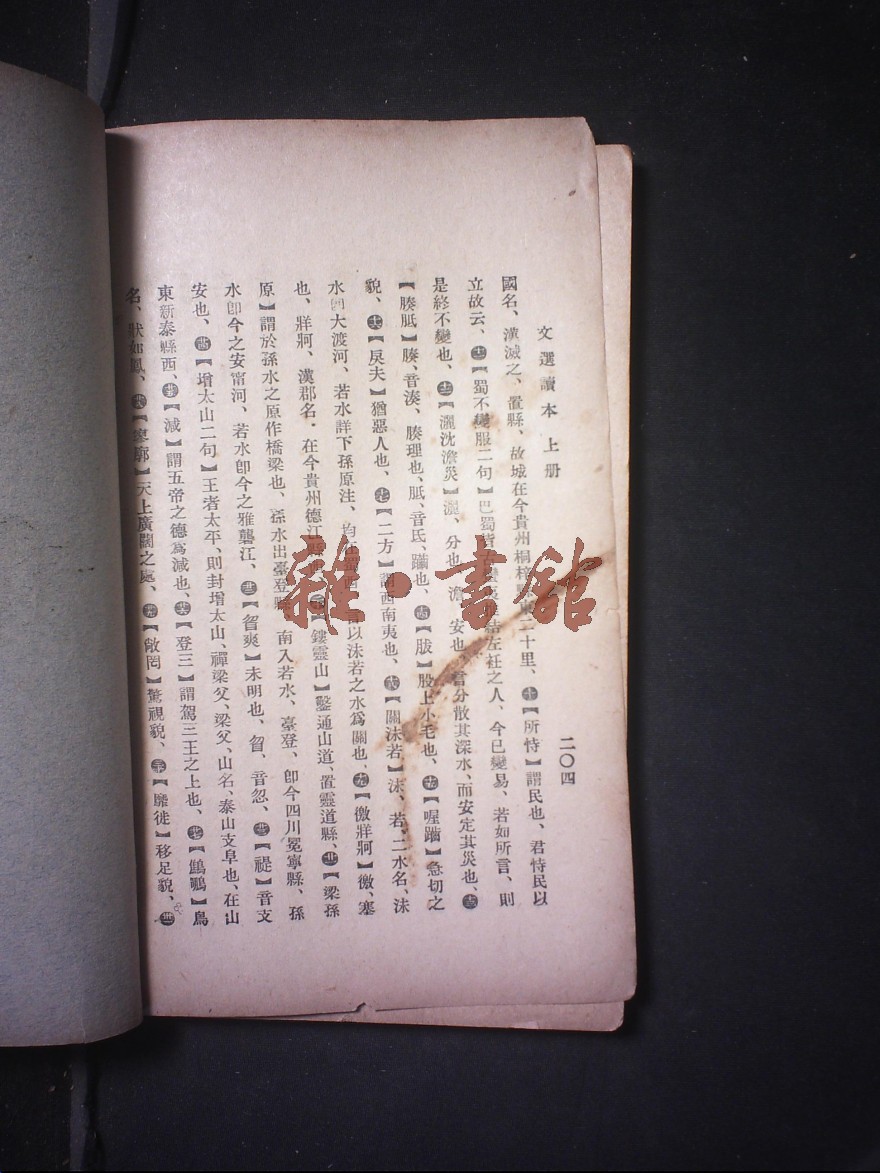 文選讀本 上册
二〇四
國名、漢滅之、置縣、故城在今貴州桐梓東二十里、㊉【所恃】謂民也、君恃民以
立故云、【蜀不變服二句】巴蜀左衽之人、今已變易、若如所言、則
是終不變也、【灑沈澹災】灑、分也、澹、安也、言分散其深水、而安定其災也、
【腠胝】腠、音湊、腠理也、胝、音氐、躪也、【胈】股上小毛也、【喔躪】急切之
貌、【戾夫】猶惡人也、【二方】謂西南夷也、【關沬若】沬、若、二水名、沬
水卽大渡河、若水詳下孫原注、均在以沬若之水爲關也、【徼牂牁】徼、塞
也、牂牁、漢郡名、在今貴州德江縣【鏤靈山】鑿通山道、置靈道縣、【梁孫
原】謂於孫水之原作橋梁也、孫水出臺登縣、南入若水、臺登、卽今四川冕寧縣、孫
水卽今之安甯河、若水卽今之雅礱江、【曶爽】未明也、曶、音忽、【禔】音支
安也、【增太山二句】王者太平、則封增太山、禪梁父、梁父、山名、泰山支阜也、在山
東新泰縣西、【減】謂五帝之德爲減也、【登三】謂駕三王之上也、【鷦鵬】鳥
名、狀如鳳、【寥廓】天上廣闊之處、【敞罔】驚視貌、【靡徙】移足貌、
雜·書館